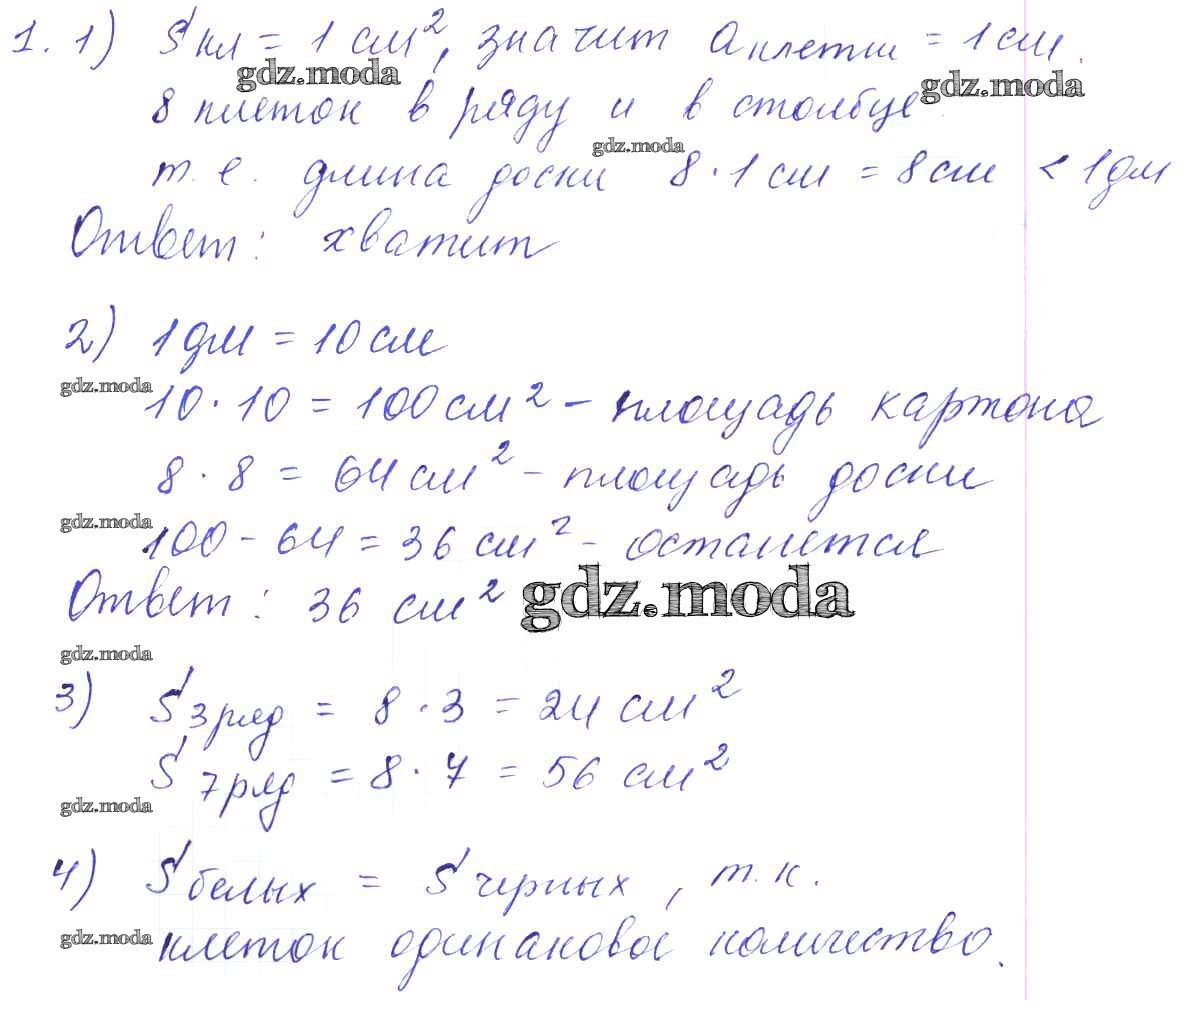 1. 1) Sкл = 1 см², значит a клетки = 1 см.
gdz.moda
gdz.moda
8 клеток в ряду и в столбце.
gdz.moda
т. е. длина доски 8 · 1 см = 8 см < 1 дм
Ответ: хватит
2) 1 дм = 10 см
gdz.moda
10 · 10 = 100 см² - площадь картона
8 · 8 = 64 см² - площадь доски
gdz.moda
100 - 64 = 36 см² - останется
Ответ: 36 см²
gdz.moda
gdz.moda
3) S 3 ряд = 8 · 3 = 24 см²
S 7 ряд = 8 · 7 = 56 см²
gdz.moda
4) S белых = S черных, т. к.
gdz.moda
клеток одинаковое количество.